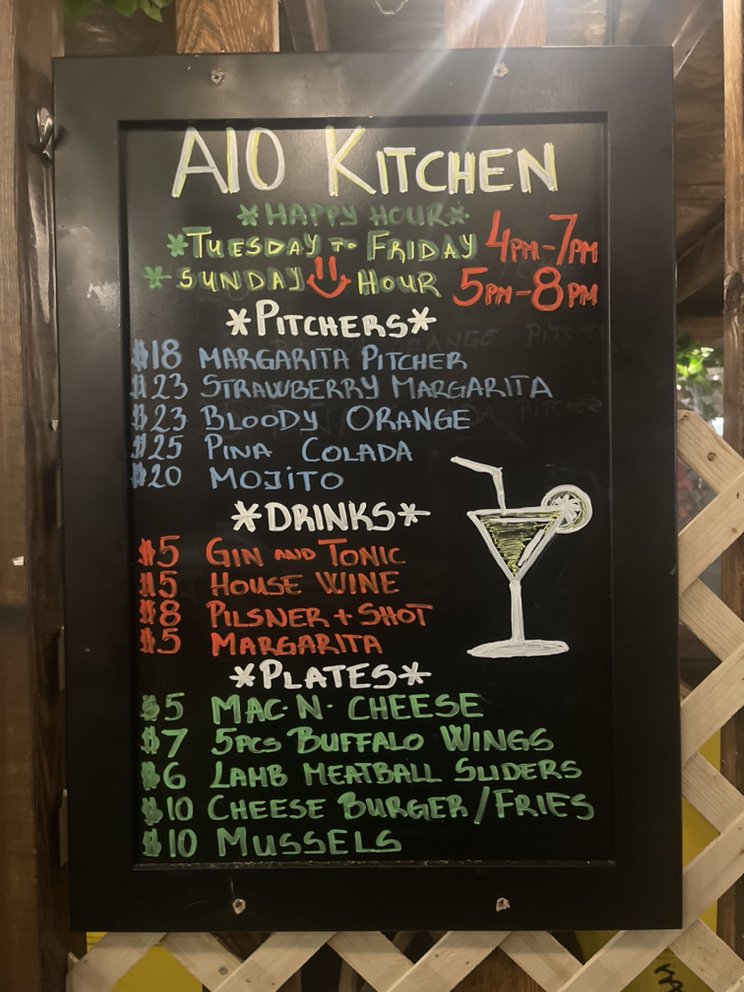 A10 KITCHEN
*HAPPY HOUR*
*TUESDAY TO FRIDAY 4PM-7PM
*SUNDAY HOUR 5PM-8PM
*PITCHERS*
$18 MARGARITA PITCHER
$23 STRAWBERRY MARGARITA
$23 BLOODY ORANGE
$25 PINA COLADA
$20 MOJITO
*DRINKS*
$5 GIN AND TONIC
$5 HOUSE WINE
$8 PILSNER + SHOT
$5 MARGARITA
*PLATES*
$5 MAC·N· CHEESE
$7 5PCS BUFFALO WINGS
$6 LAMB MEATBALL SLIDERS
$10 CHEESE BURGER/FRIES
$10 MUSSELS